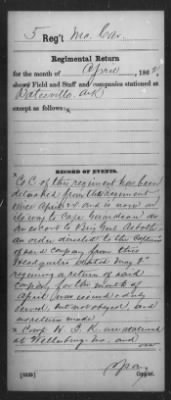 5 Reg't Mo. Cav.
Regimental Return
for the month of April, 186
shows Field and Staff and companies stationed at
Batesville, Ark
except as follows:
RECORD OF EVENTS.
"Co C of this regiment has been
detached from the regiment
since April and is now on
its way to Cape Girardeau as
an escort to Brig Gen
an order directed to the
of said company from this
Head quarters dated May
requiring a return of said
company for the month of
April was issued & duly
served, but not obeyed, and
no return made
Comp H. & K. are stationed
at Mo. and
Copyist.